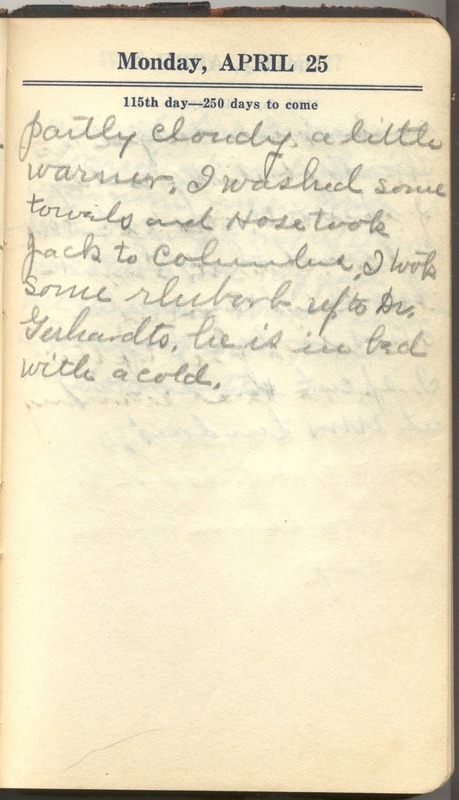 Monday, APRIL 25
115th day—250 days to come
partly cloudy, a little
warmer, I washed some
towels and Hose took
Jack to Columbus, I took
some rhubarb up to Dr.
Gerhardts, he is in bed
with a cold.